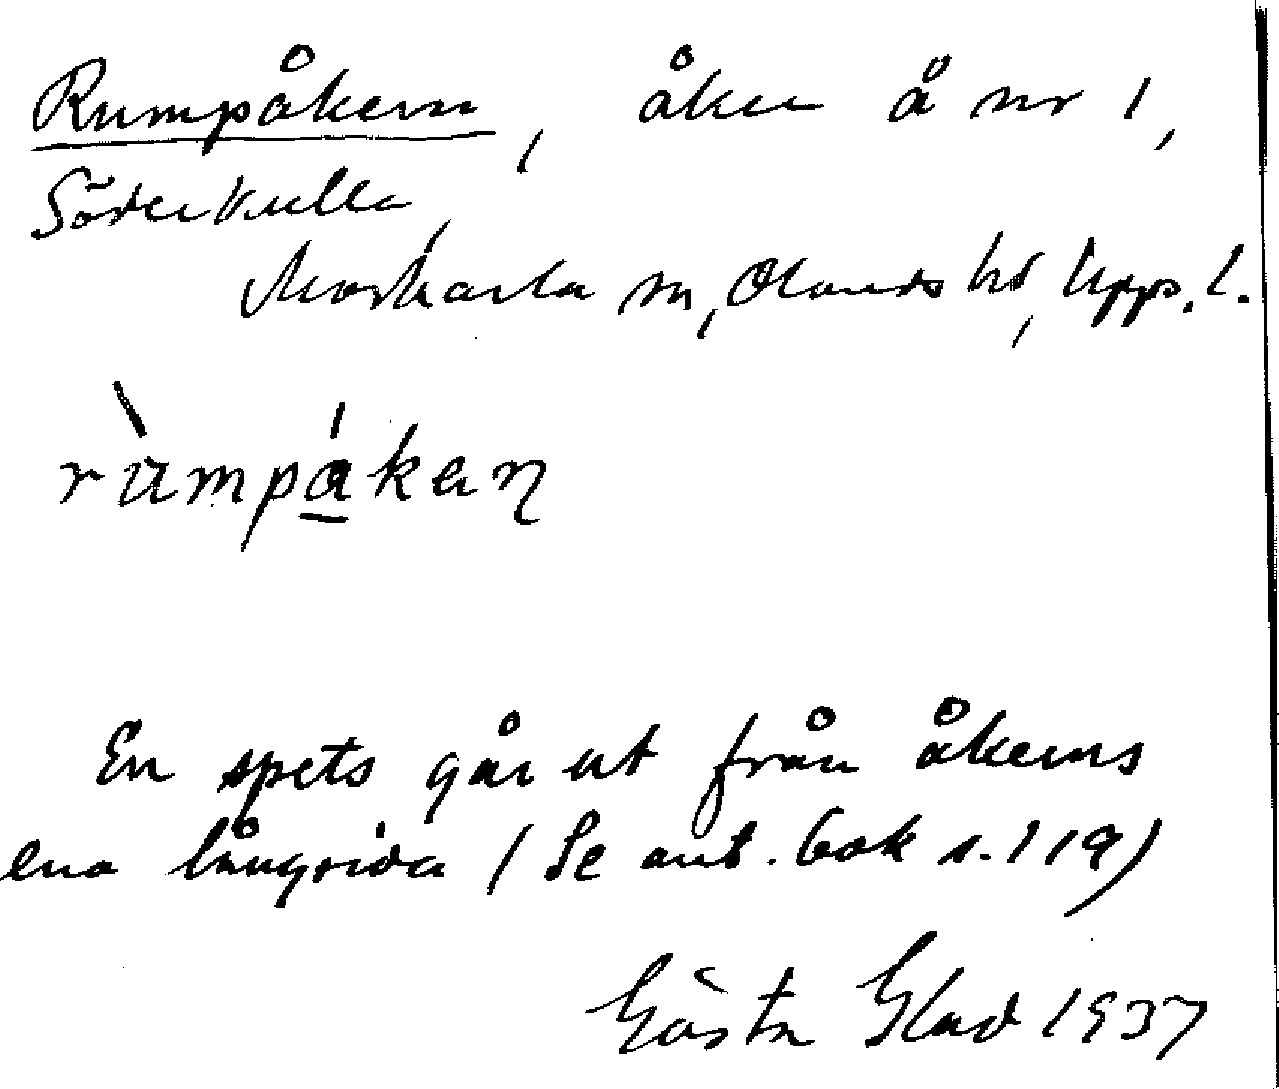 Rumpåkern, åker å nr 1,
Söderkulla,
Morkarla sn, Olands hd, Uppl.
rùmpá̱kaɳ
En spets går ut från åkerns
ena långsida (Se ant.bok s.119)
Gösta Glad 1937